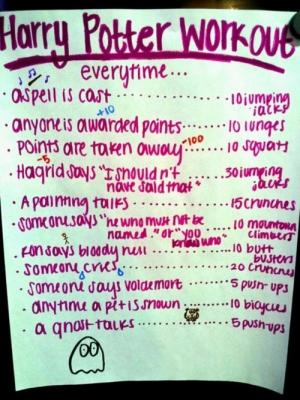 Harry Potter Workout
everytime...
· a spell is cast........10 jumping
jacks
+10
· anyone is awarded points.....10 lunges
· Points are taken away -100......10 squats
-5
· Hagrid says "I shouldn't......30 jumping
have said that" jacks
· A painting talks..........15 crunches
· someone says "he who must not be
named." or "you know who"......10 mountain
climbers
· Ron says bloody hell........10 butt
busters
· someone cries..........20 crunches
· someone says voldemort.....5 push-ups
· anytime a pet is shown.......10 bicycles
· a ghost talks............5 push-ups